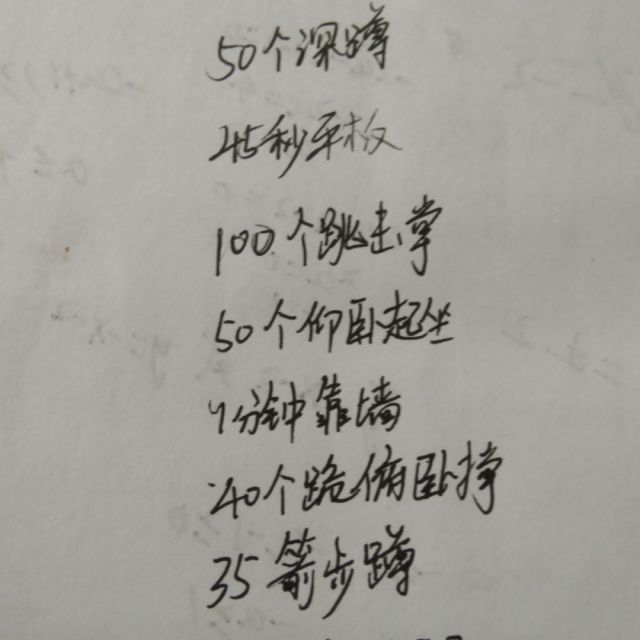 50个深蹲
45秒平板
100个跳击掌
50个仰卧起坐
1分钟靠墙
40个跪俯卧撑
35箭步蹲